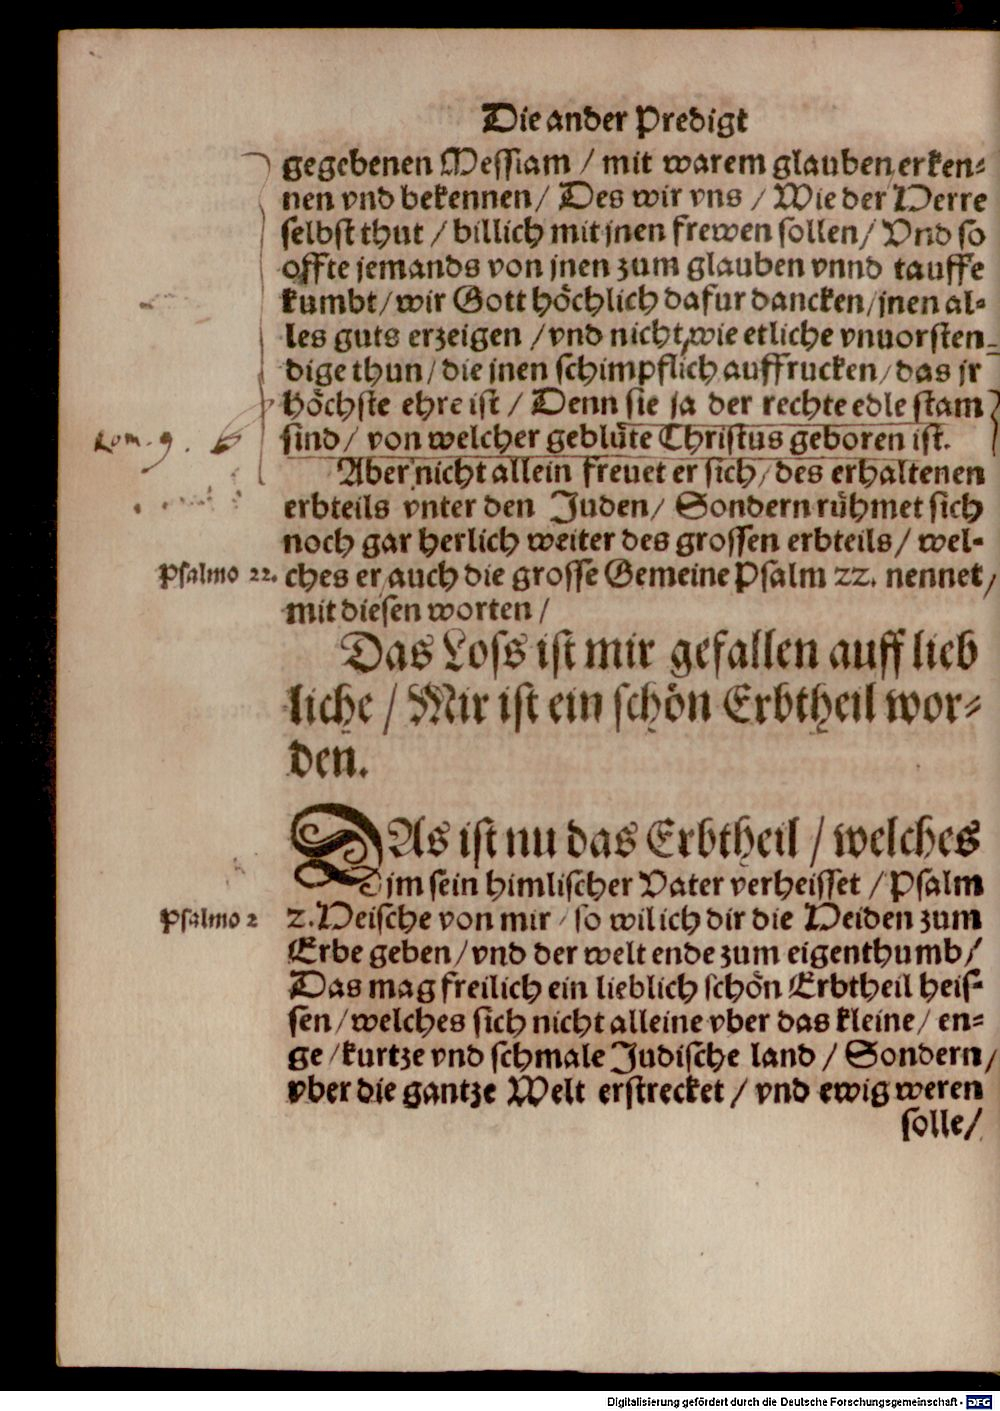 Die ander Predigt
gegebenen Messiam / mit warem glauben erken-
nen vnd bekennen / Des wir vns / Wie der Herre
selbst thut / billich mit jnen frewen sollen / Vnd so
offte jemands von jnen zum glauben vnnd tauffe
kumbt / wir Gott höchlich dafur dancken / jnen al-
les guts erzeigen / vnd nicht, wie etliche vnuorsten-
dige thun / die jnen schimpflich auffrucken / das jr
höchste ehre ist / Denn sie ja der rechte edle stam
Rom. 9.
sind / von welcher geblüte Christus geboren ist.
Aber nicht allein frewet er sich / des erhaltenen
erbteils vnter den Juden / Sondern rühmet sich
noch gar herlich weiter des grossen erbteils / wel-
Psalmo 22.
ches er auch die grosse Gemeine Psalm 22. nennet /
mit diesen worten /
Das Loss ist mir gefallen auff lieb
liche / Mir ist ein schön Erbtheil wor-
den.
DAs ist nu das Erbtheil / welches
jm sein himlischer Vater verheisset / Psalm
Psalmo 2
2. Heische von mir / so wil ich dir die Heiden zum
Erbe geben / vnd der welt ende zum eigenthumb /
Das mag freilich ein lieblich schön Erbtheil heis-
sen / welches sich nicht alleine vber das kleine / en-
ge / kurtze vnd schmale Judische land / Sondern /
vber die gantze Welt erstrecket / vnd ewig weren
solle /
Digitalisierung gefördert durch die Deutsche Forschungsgemeinschaft - DFG